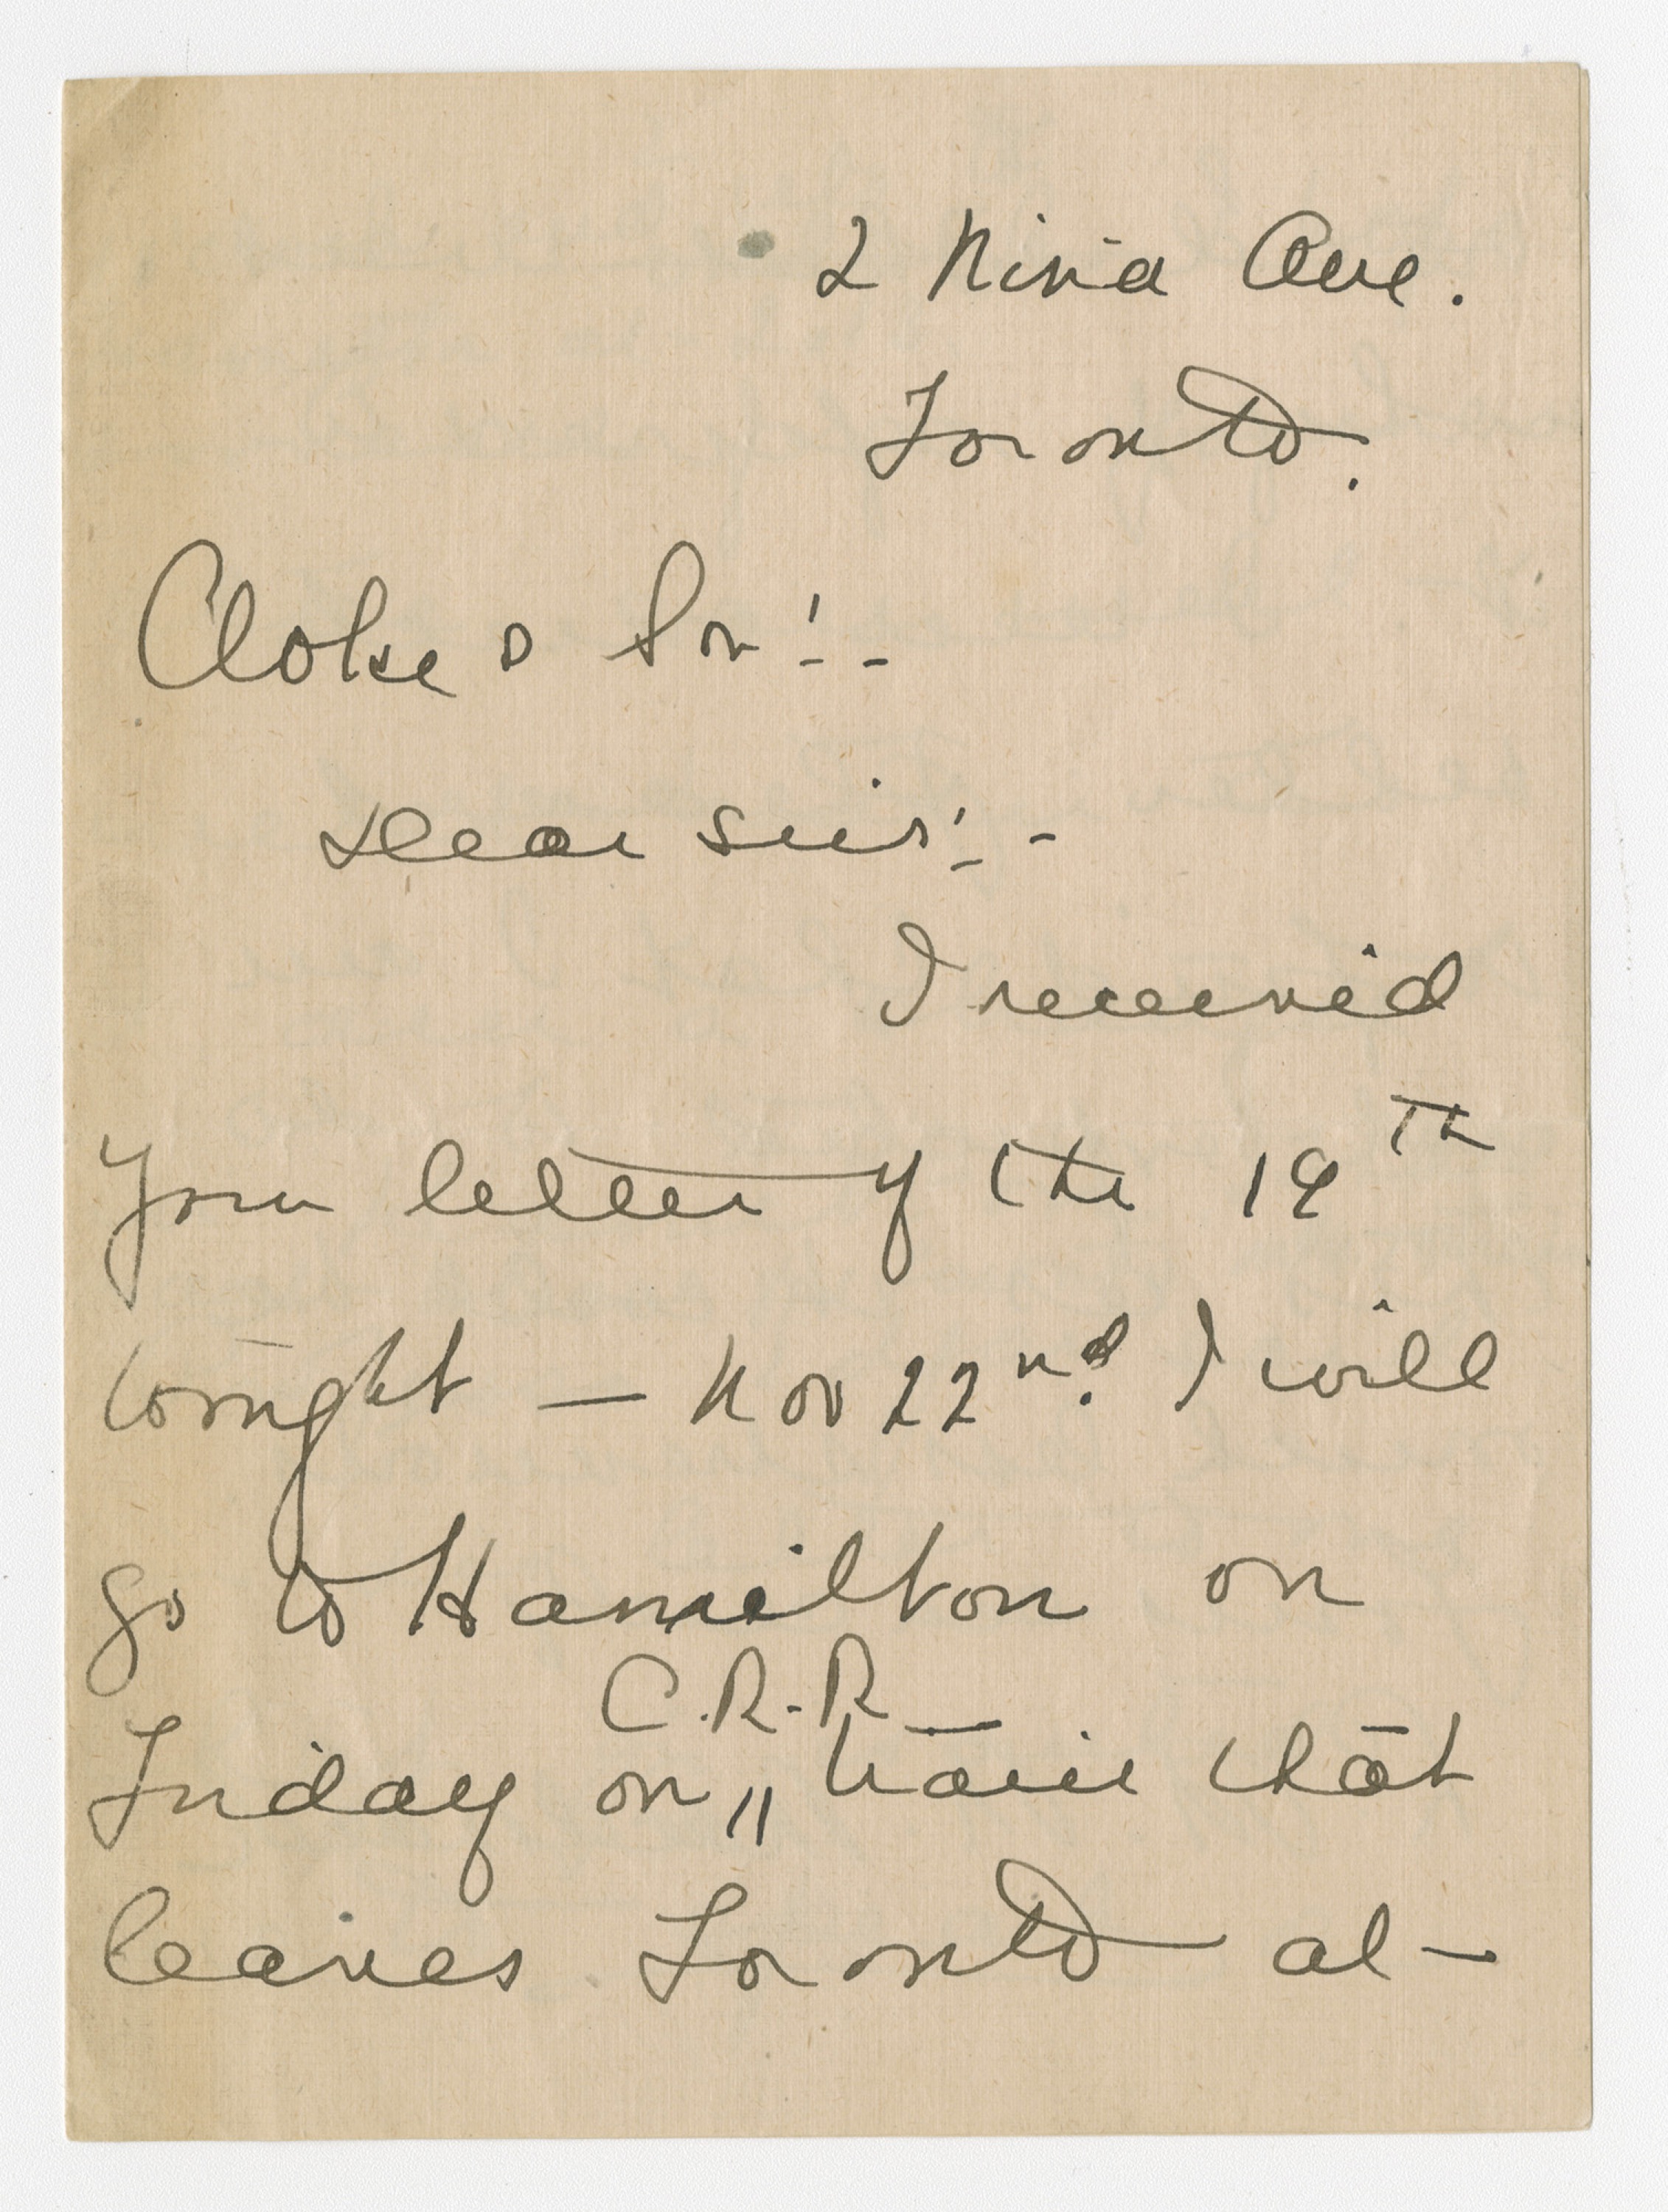 2 Nina Ave.
Toronto.
Cloke & Son:-
Dear sir:-
I received
your letter of the 19th
tonight — Nov 22nd. I will
go to Hamilton on
C.R.R.
Friday on " train that
leaves Toronto at-